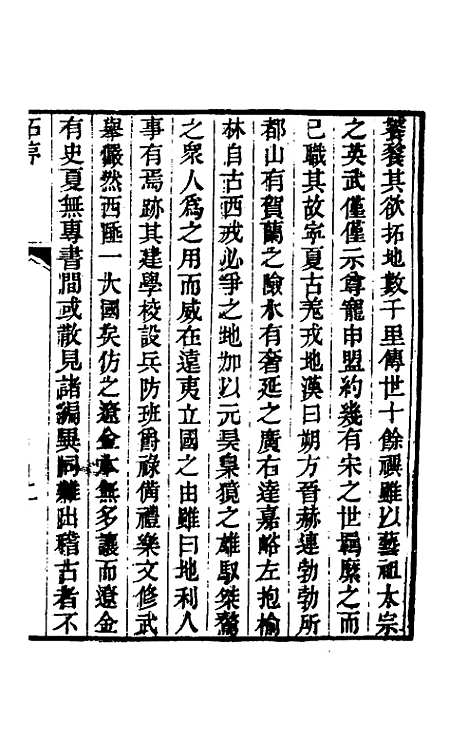 饕餮其欲拓地數千里傳世十餘禩雖以藝祖太宗
之英武僅僅示尊寵申盟約幾有宋之世羈縻之而
已職其故寧夏古羌戎地漢曰朔方晉赫連勃勃所
都山有賀蘭之險水有奢延之廣右達嘉峪左抱榆
林自古西戎必爭之地加以元昊梟獍之雄馭桀驁
之眾人為之用而威在遠夷立國之由雖曰地利人
事有焉跡其建學校設兵防班爵祿備禮樂文修武
舉儼然西陲一大國矣仿之遼金本無多讓而遼金
有史夏無專書間或散見諸編異同雜出稽古者不